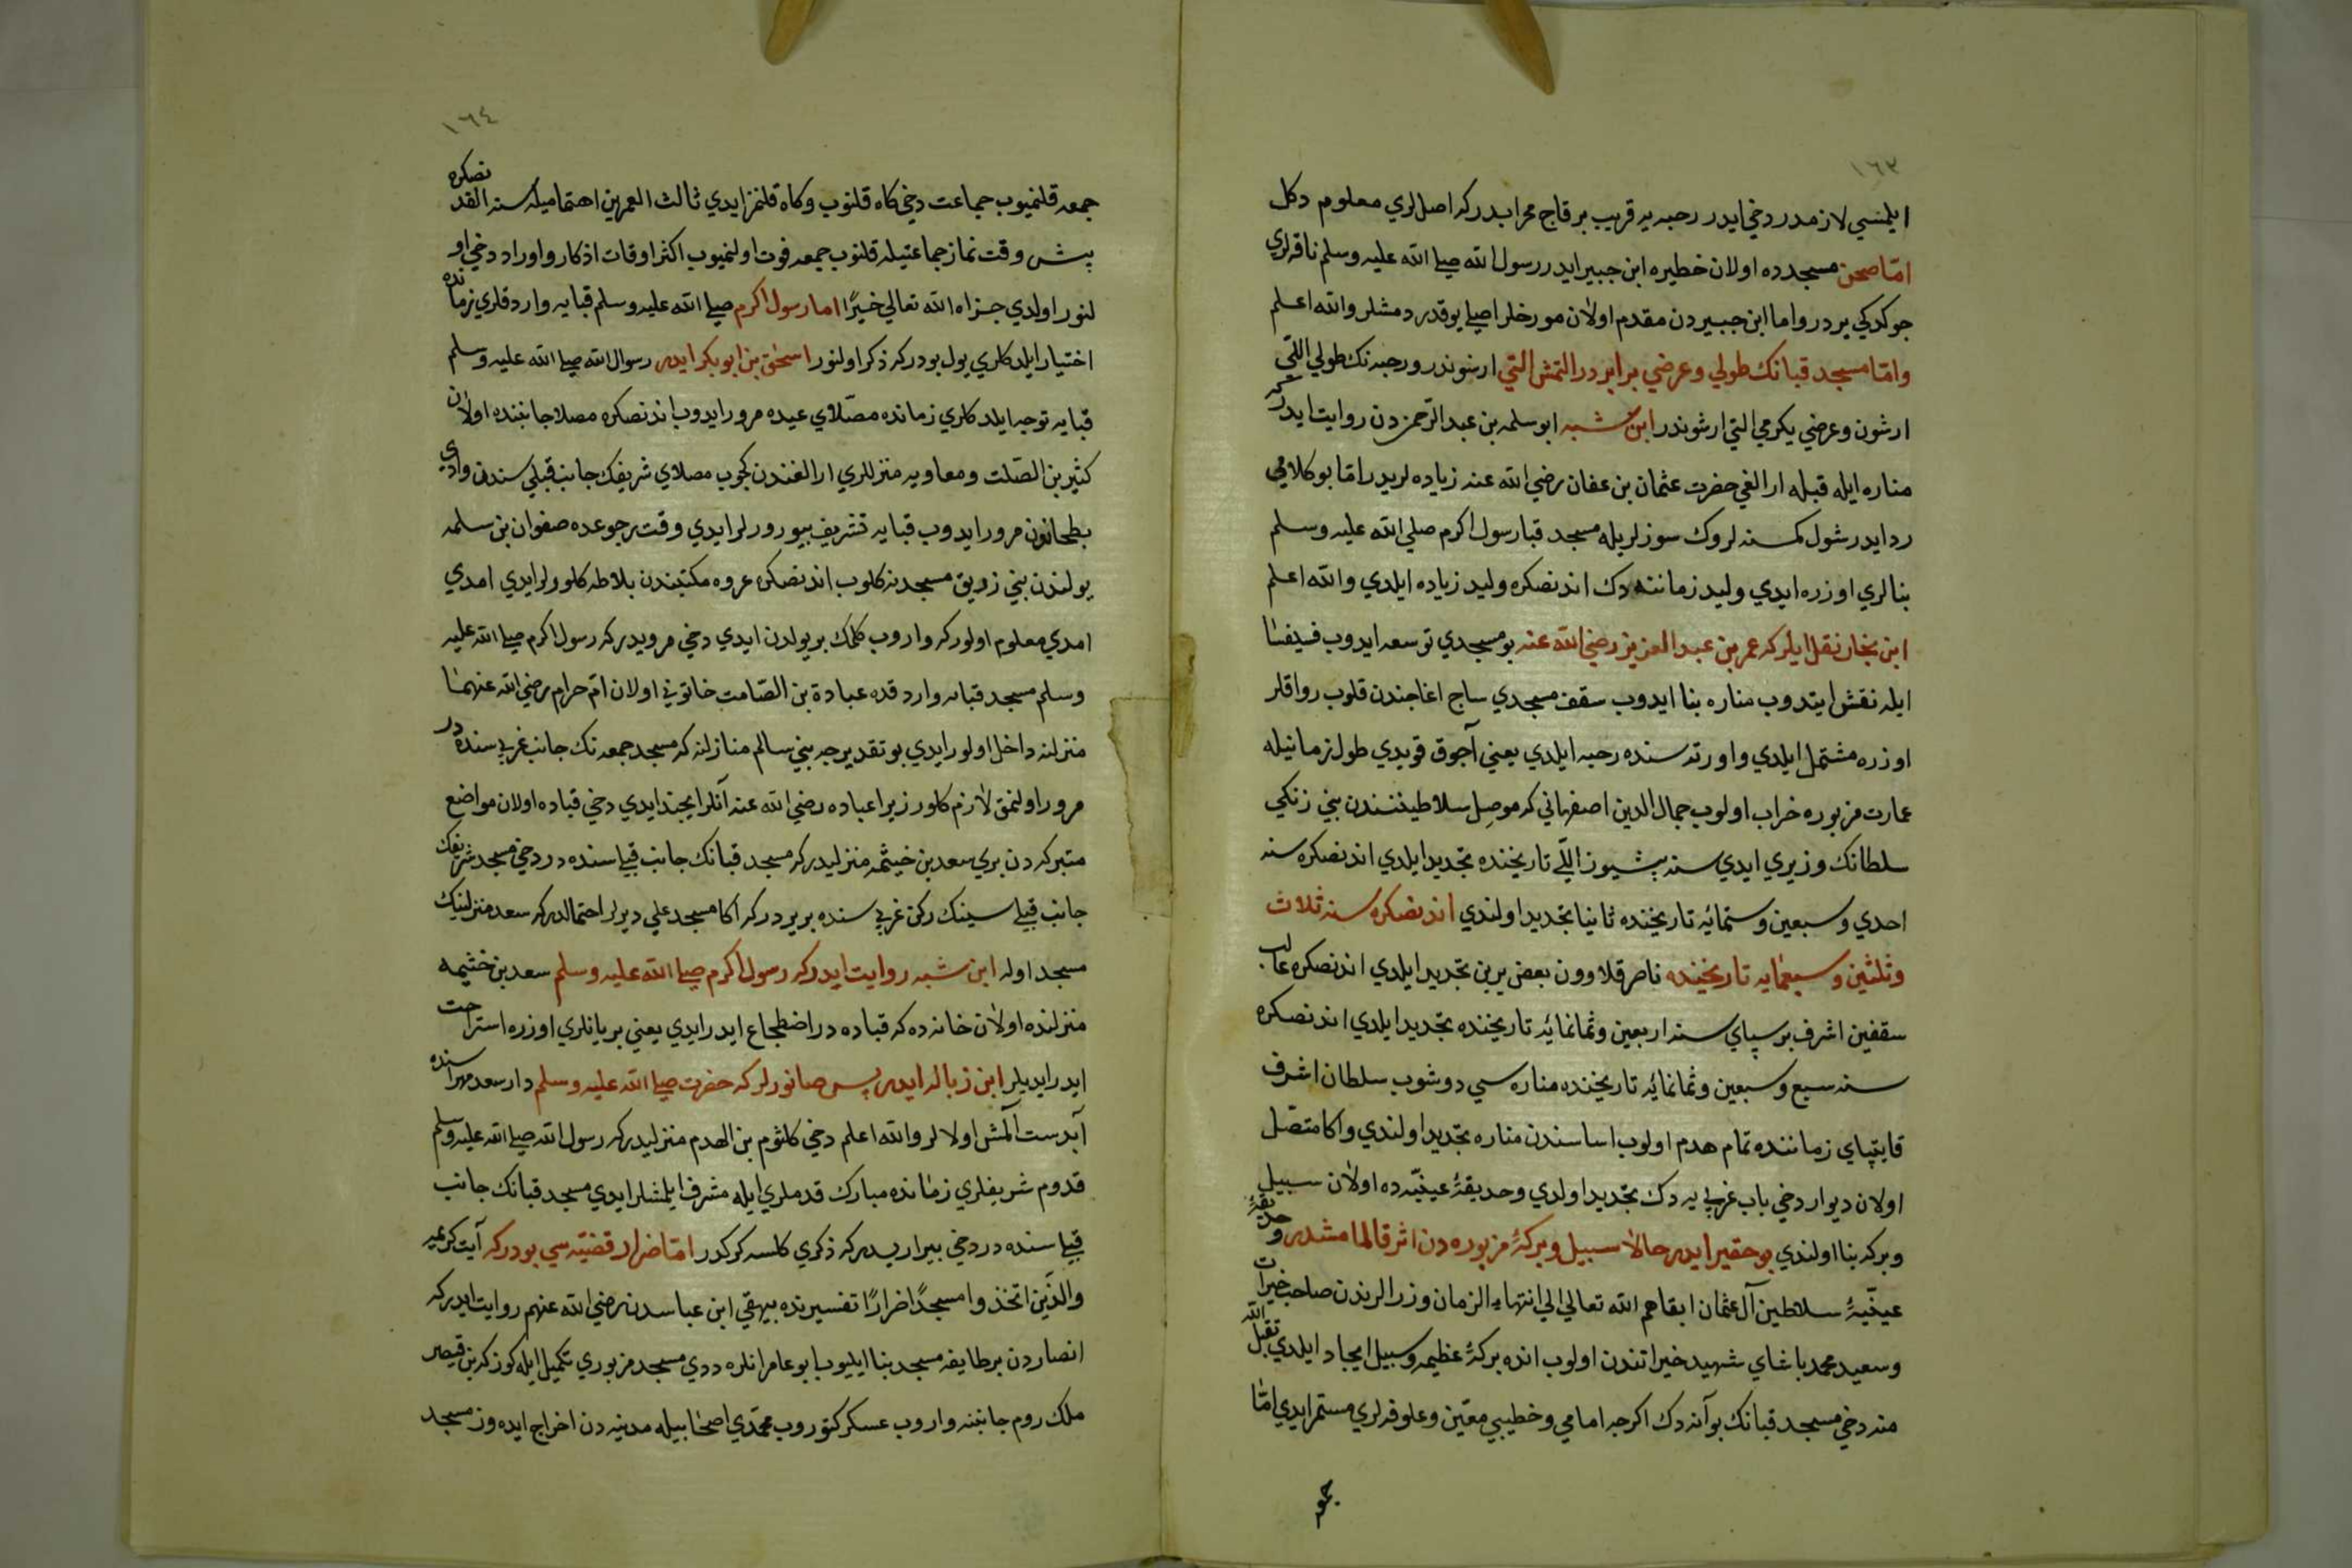 ١٦٣
ايلمسي لازمدر دخي ايدر رحبه يه قريب بر قاچ محرابدركه اصللري معلوم دكل
امّا صحن مسجدده اولان خطيره ابن جبير ايدر رسول الله صلي الله عليه وسلم ناقه لري
چوكدكي يردر واما ابن جبيردن مقدم اولان مورخلر اصلي يوقدر دمشلر والله اعلم
وامّا مسجد قبانك طولي وعرضي برابردر التمش التي ارشوندر ورحبه نك طولي اللّي
ارشون وعرضي يكرمي التي ارشوندر ابن شبه ابو سلمه بن عبد الرّحمن دن روايت ايدركه
مناره ايله قبله ارالغي حضرت عثمان بن عفان رضي الله عنه زياده لريدر امّا بو كلامي
رد ايدر شول كمسنه لروك سوزلريله مسجد قبا رسول اكرم صلي الله عليه وسلم
بنالري اوزره ايدي وليد زماننه دك اندنصكره وليد زياده ايلدي والله اعلم
ابن نجار نقل ايلركه عمر بن عبد العزيز رضي الله عنه بو مسجدي توسعه ايدوب فسيفسا
ايله نقش ايتدوب مناره بنا ايدوب سقف مسجدي ساج اغاجندن قلوب رواقلر
اوزره مشتمل ايلدي واورته سنده رحبه ايلدي يعني آچوق قويدي طول زمانيله
عمارت مزبوره خراب اولوب جمال الدين اصفهاني كه موصل سلاطيننندن بني زنكي
سلطانك وزيري ايدي سنه بشيوز اللّي تاريخنده تجديد ايلدي اندنصكره سنه
احدي وسبعين وستمائه تاريخنده ثانيا تجديد اولندي اندنصكره سنه ثلاث
وثلثين وسبعمايه تاريخنده ناصر قلاوون بعض يرين تجديد ايلدي اندنصكره غالب
سقفين اشرف برسپاي سنه اربعين وثمانمائه تاريخنده تجديد ايلدي اندنصكره
سنه سبع وسبعين وثمانمائه تاريخنده مناره سي دوشوب سلطان اشرف
قايتپاي زماننده تمام هدم اولوب اساسندن مناره تجديد اولندي واكا متصّل
اولان ديوار دخي باب غربي يه دك تجديد اولدي وحديقهٔ عينيّه ده اولان سبيل
وبركه بنا اولندي بو حقير ايدر حالا سبيل وبركهٔ مزبوره دن اثر قالمامشدر وحديقهٔ
عينيّهٔ سلاطين آل عثمان ابقاهم الله تعالي الي انتهاء الزمان وزرالرندن صاحب خيرات
وسعيد محمد باشاي شهيد خيراتندن اولوب انده بركهٔ عظيمه وسبيل ايجاد ايلدي تقبل الله
منه دخي مسجد قبانك بوآنه دك اكرجه امامي وخطيبي معيّن وعلوفه لري مستمر ايدي امّا
جمعه
١٦٤
جمعه قلنميوب جماعت دخي كاه قلنوب وكاه قلنمز ايدي ثالث العمرين اهتماميله سنه القدنصكره
بش وقت نماز جماعتيله قلنوب جمعه فوت اولنميوب اكثر اوقات اذكار واوراد دخي او
لنور اولدي جزاه الله تعالي خيرًا اما رسول اكرم صلي الله عليه وسلم قبايه واردقلري زمانده
اختيار ايلدكلري يول بودركه ذكر اولنور اسحٰق بن ابو بكر ايدر رسول الله صلي الله عليه وسلم
قبايه توجه ايلدكلري زمانده مصّلاي عيده مرور ايدوب اندنصكره مصلا جانبنده اولان
كثير بن الصّلت ومعاويه منزللري ارالغندن كچوب مصلاي شريفك جانب قبلي سندن وادي
بطحانون مرور ايدوب قبايه تشريف بيورورلر ايدي وقت رجوعده صفوان بن سلمه
يولندن بني زريق مسجدنه كلوب اندنصكره عروه مكتبندن بلاطه كلورلر ايدي امدي
امدي معلوم اولوركه واروب كلمك بر يولدن ايدي دخي مرويدركه رسول اكرم صلي الله عليه
وسلم مسجد قبايه واردقده عبادة بن الصّامت خاتوني اولان امّ حرام رضي الله عنهما
منزلنه داخل اولور ايدي بو تقديرجه بني سالم منازلنه كه مسجد جمعه نك جانب غربي سنده در
مرور اولنمق لازم كلور زيرا عباده رضي الله عنه آنلر ايچنده ايدي دخي قباده اولان مواضع
متبركه دن بري سعد بن خيثمه منزليدركه مسجد قبانك جانب قبلي سنده در دخي مسجد شريفك
جانب قبلي سينك ركن غربي سنده بر يردركه اكا مسجد علي ديرلر احتمالدركه سعد منزلينك
مسجد اوله ابن شبه روايت ايدركه رسول اكرم صلي الله عليه وسلم سعد بن خثيمه
منزلنده اولان خانه ده كه قباده در اضطجاع ايدر ايدي يعني بر يانلري اوزره استراحت
ايدر ايديلر ابن زباله ايدر پس صانورلركه حضرت صلي الله عليه وسلم دار سعد سنده
آبدست آلمش اولالر والله اعلم دخي كلثوم بن الهدم منزليدركه رسول الله صلي الله عليه وسلم
قدوم شريفلري زمانده مبارك قدملري ايله مشرف ايلمشلر ايدي مسجد قبانك جانب
قبلي سنده در دخي بيراريسدركه ذكري كلسه كركدر امّا ضرار قضيّه سي بودركه آيت كريمه
والذّين اتخذوا مسجدًا ضرارًا تفسيرنده بيهقي ابن عباسدن رضي الله عنهم روايت ايدركه
انصاردن بر طايفه مسجد بنا ايليوب ابو عامر انلره ددي مسجد مزبوري تكميل ايله كوزكه بن قيصر
ملك روم جانبنه واروب عسكر كتوروب محمّدي اصحابيله مدينه دن اخراج ايده وز مسجد